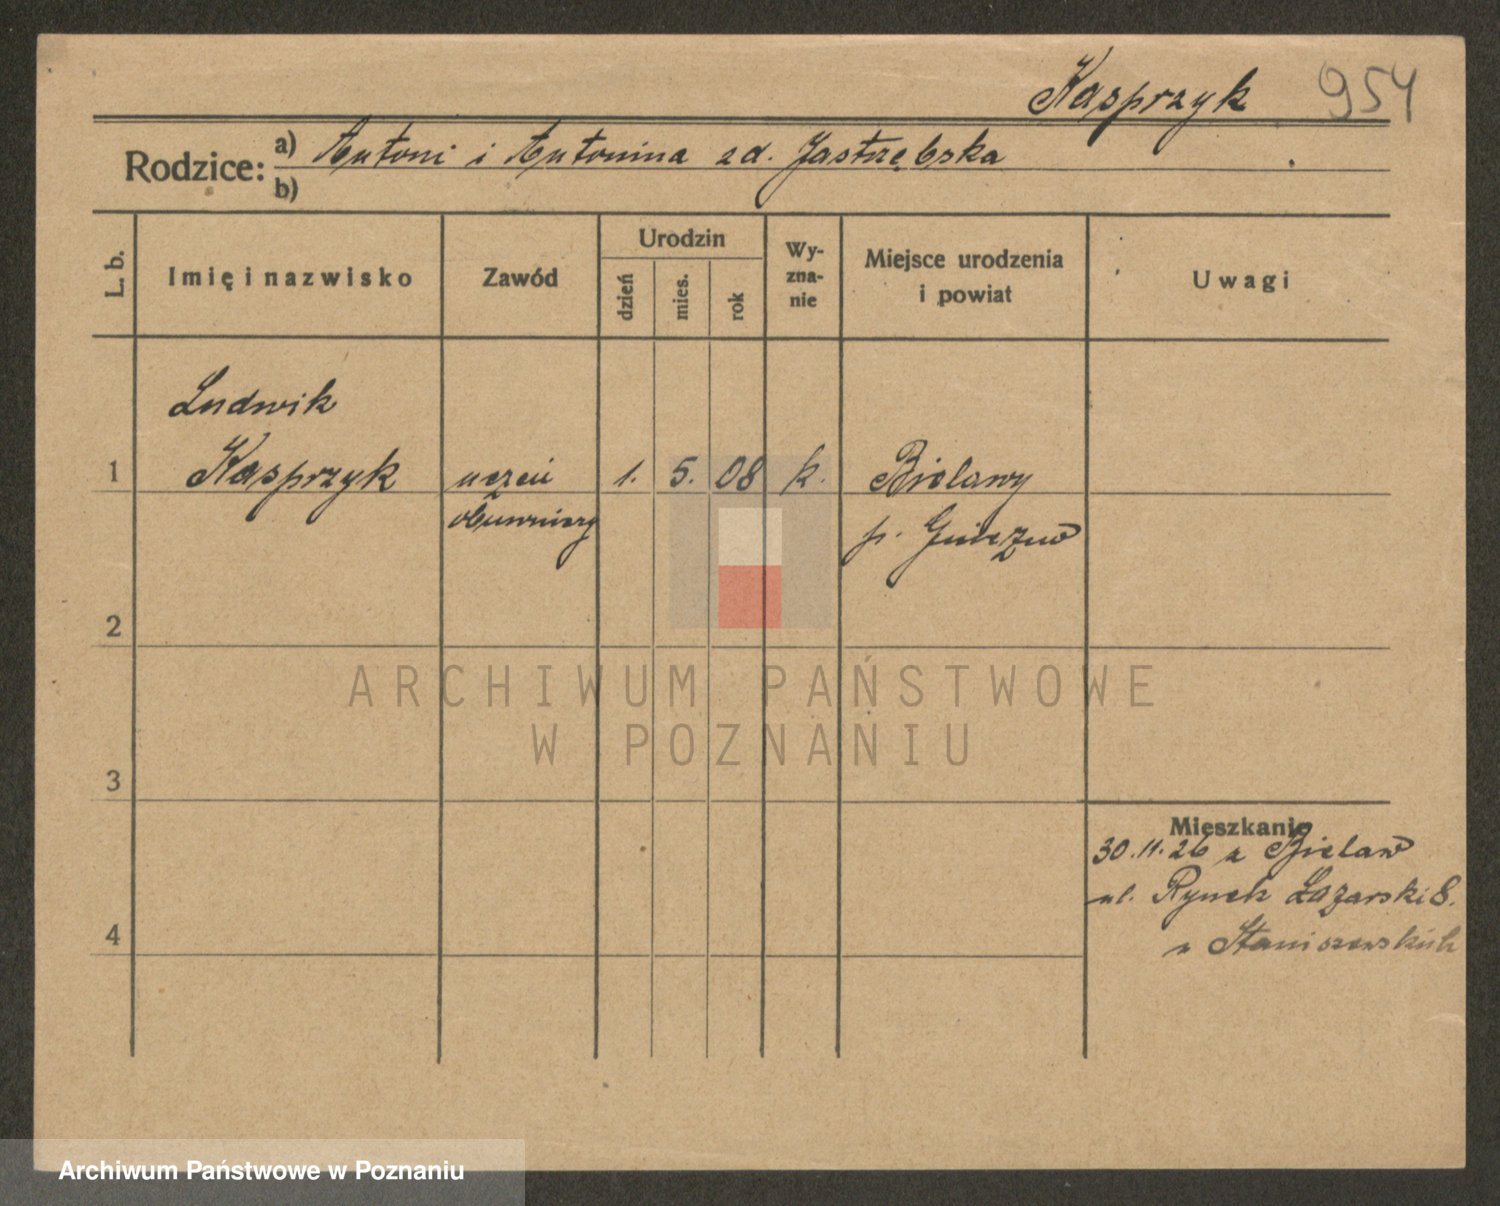 Kasprzyk 954
Rodzice: a) Antoni i Antonina zd. Jastrzębska
b)
L. b.
Imię i nazwisko
Zawód
Urodzin
dzień
mies.
rok
Wy-
zna-
nie
Miejsce urodzenia
i powiat
Uwagi
Ludwik
1 Kasprzyk uczeń 1. 5. 08 k. Bielawy
obuwniczy p. Gniezno
2
3
4
Mieszkanie
30.11.26 z Bielaw
ul. Rynek Łazarski 8.
u Staniszewskich
ARCHIWUM PAŃSTWOWE
W POZNANIU
Archiwum Państwowe w Poznaniu